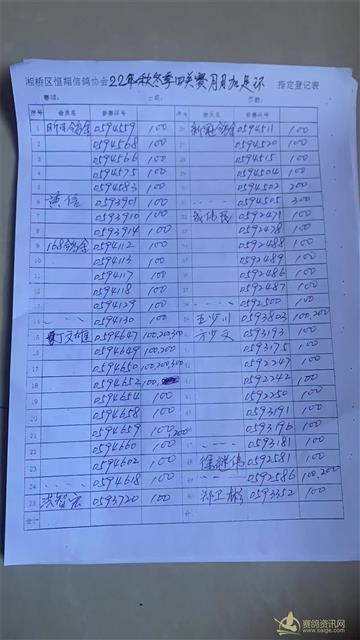 湘桥区恒翔信鸽协会22年秋冬季四关赛月月加足环 指定登记表
序号 会员名 参赛环号 序号 会员名 参赛环号
1 0594559 100 0594511 100
2 0594568 100 0594520 100
3 0594566 100 0594515 100
4 0594575 100 0594504 100
5 0594583 100 0594502 200
6 黄信 0593901 100 0594505 300
7 0593910 100 0592471 100
8 0593914 100 0592478 100
9 168鸽舍 0594112 100 0592488 100
10 0594113 100 0592489 100
11 0594117 100 0592486 100
12 0594118 100 0592487 100
13 0594129 100 0592500 100
14 0594130 100 王少川 0593803 100,200
15 丁文雄 0594647 100,200,300 方少文 0593193 100
16 0594649 100,200 0593175 100
17 0594650 100,200,300 0592247 100
18 0594652 100, 0592242 100
19 0594654 100 0592250 100
20 0594658 100 0593191 100
21 0594659 100,200 0593196 100
22 0594660 100 0593181 100
23 0594602 100 徐继伟 0592581 100
24 0594618 100 0592586 100,200
25 洪智宏 0593720 100 郑卫彬 0593352 100
合计
赛鸽资讯网
www.saige.com